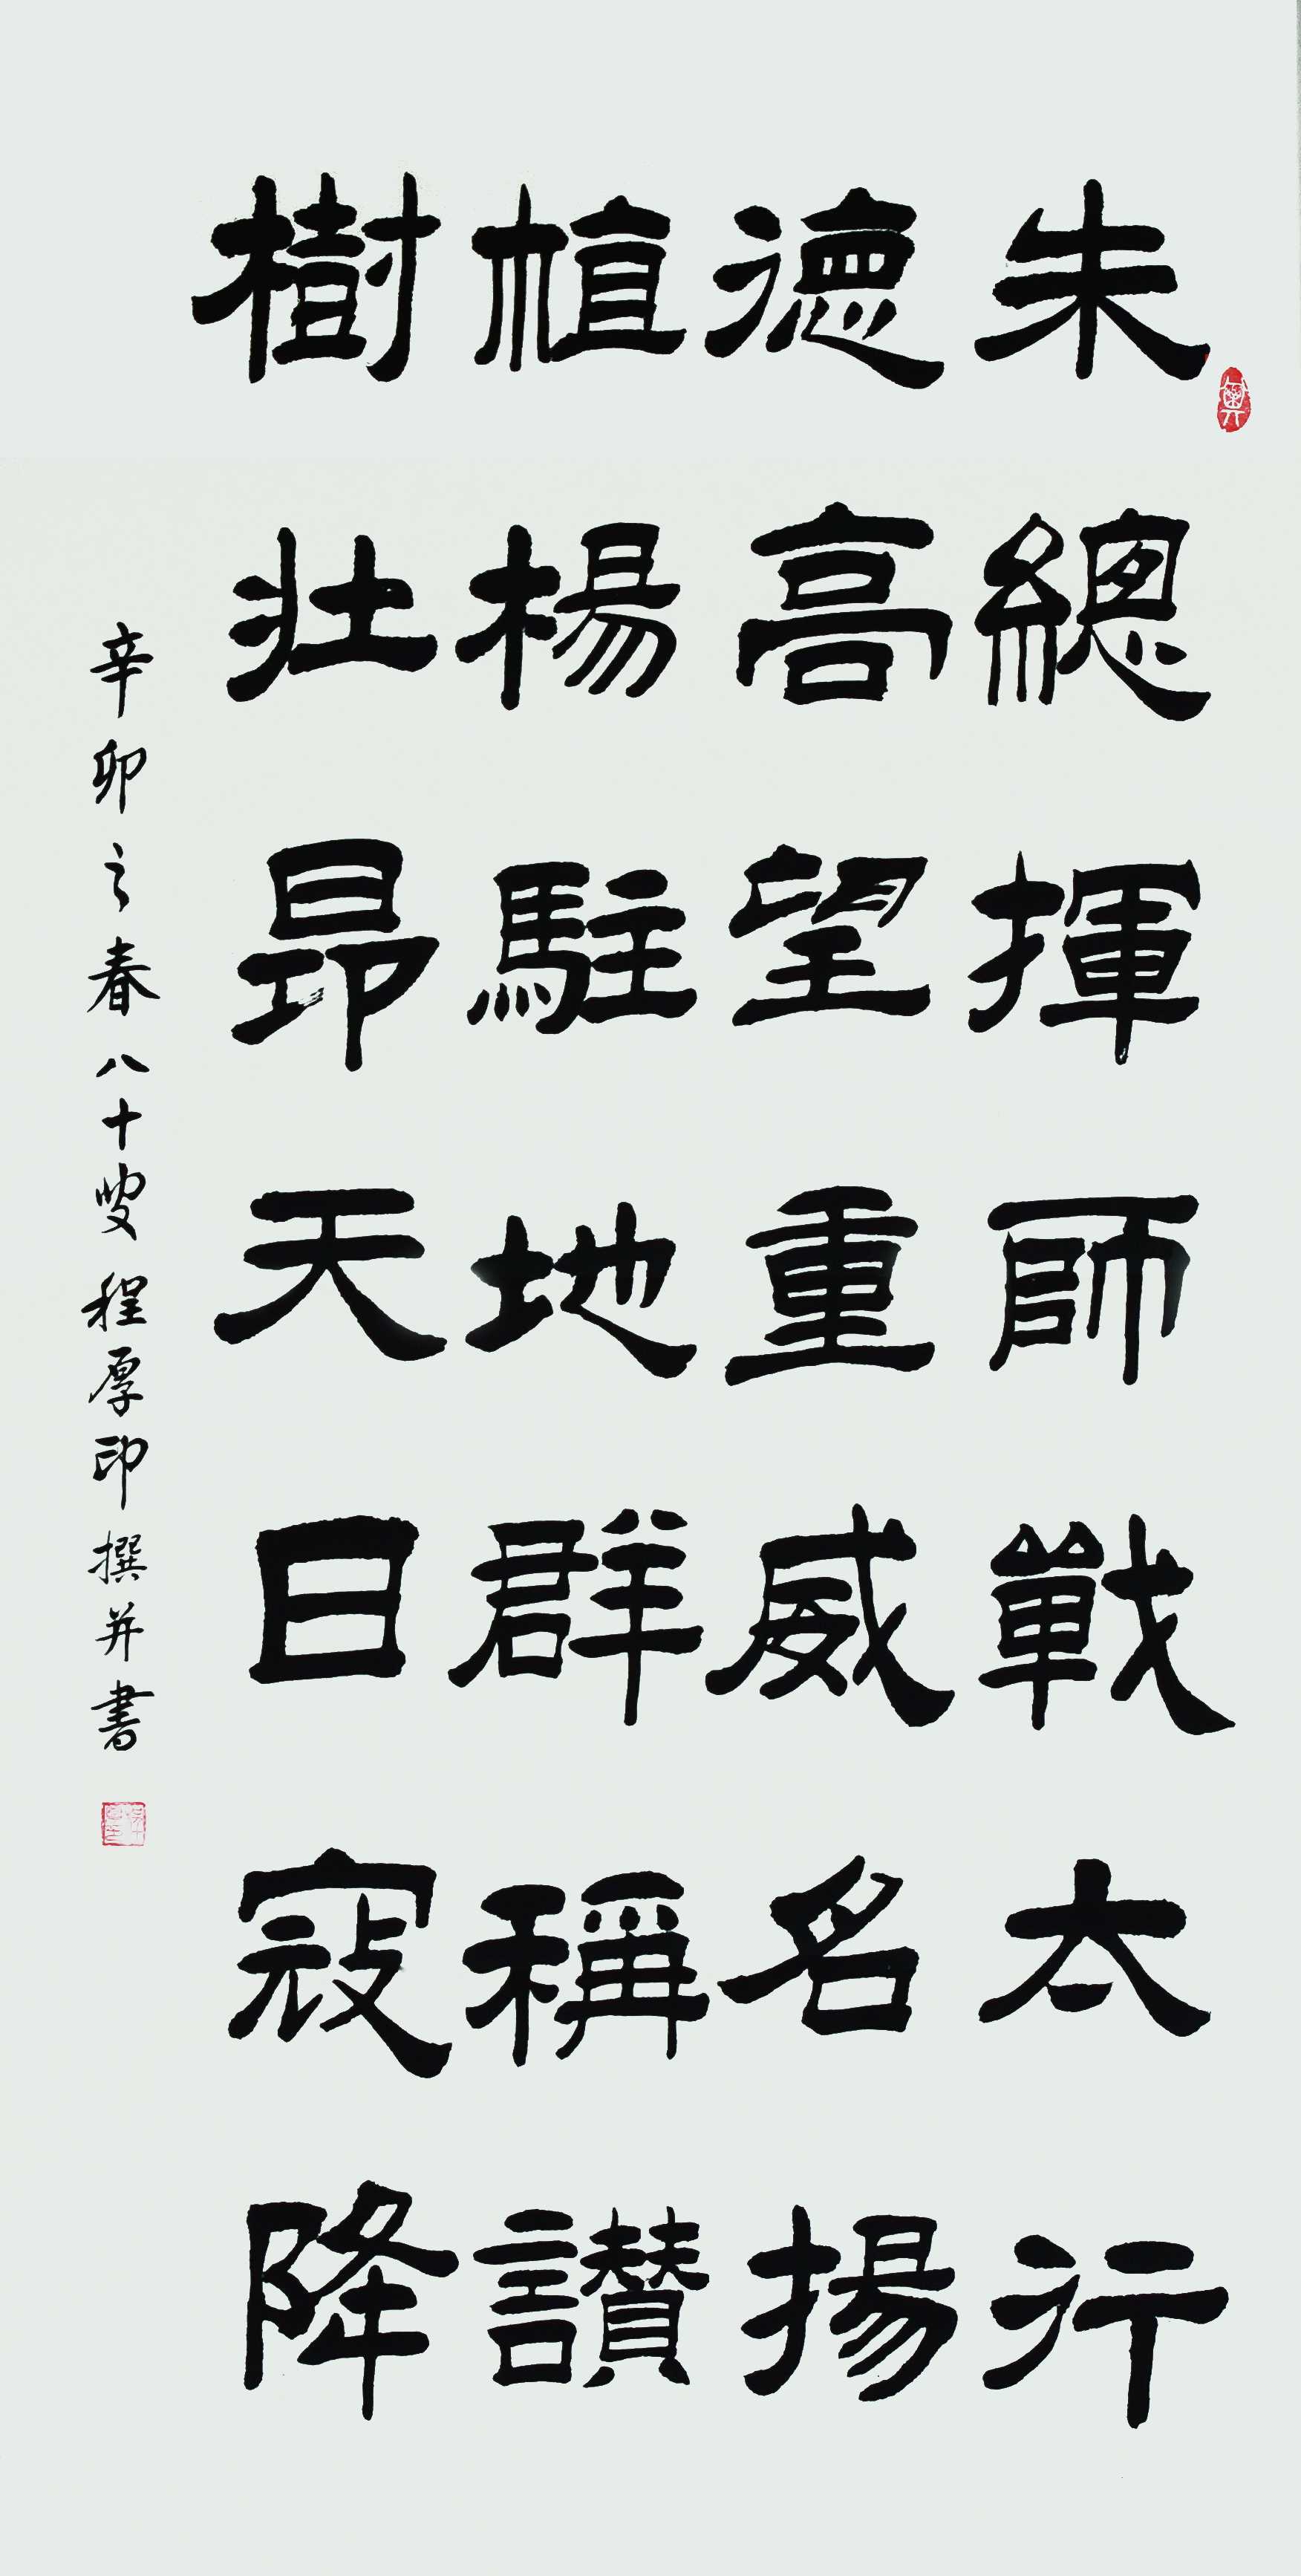 朱總揮師戰太行
德高望重威名揚
植楊駐地群稱讚
樹壯昂天日寇降
辛卯之春八十叟程厚印撰并書